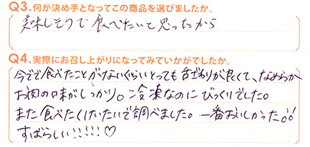 Q3.何が決め手となってこの商品を選びましたか。
美味しそうで食べたいと思ったから
Q4.実際にお召し上がりになってみていかがでしたか。
今まで食べたことがないくらいとっても舌ざわりが良くて、なめらか
お肉の味がしっかり。冷凍なのにびっくりでした。
また食べたくけたいで調べました。一番おいしかった!!
すばらしい!!!!!♡